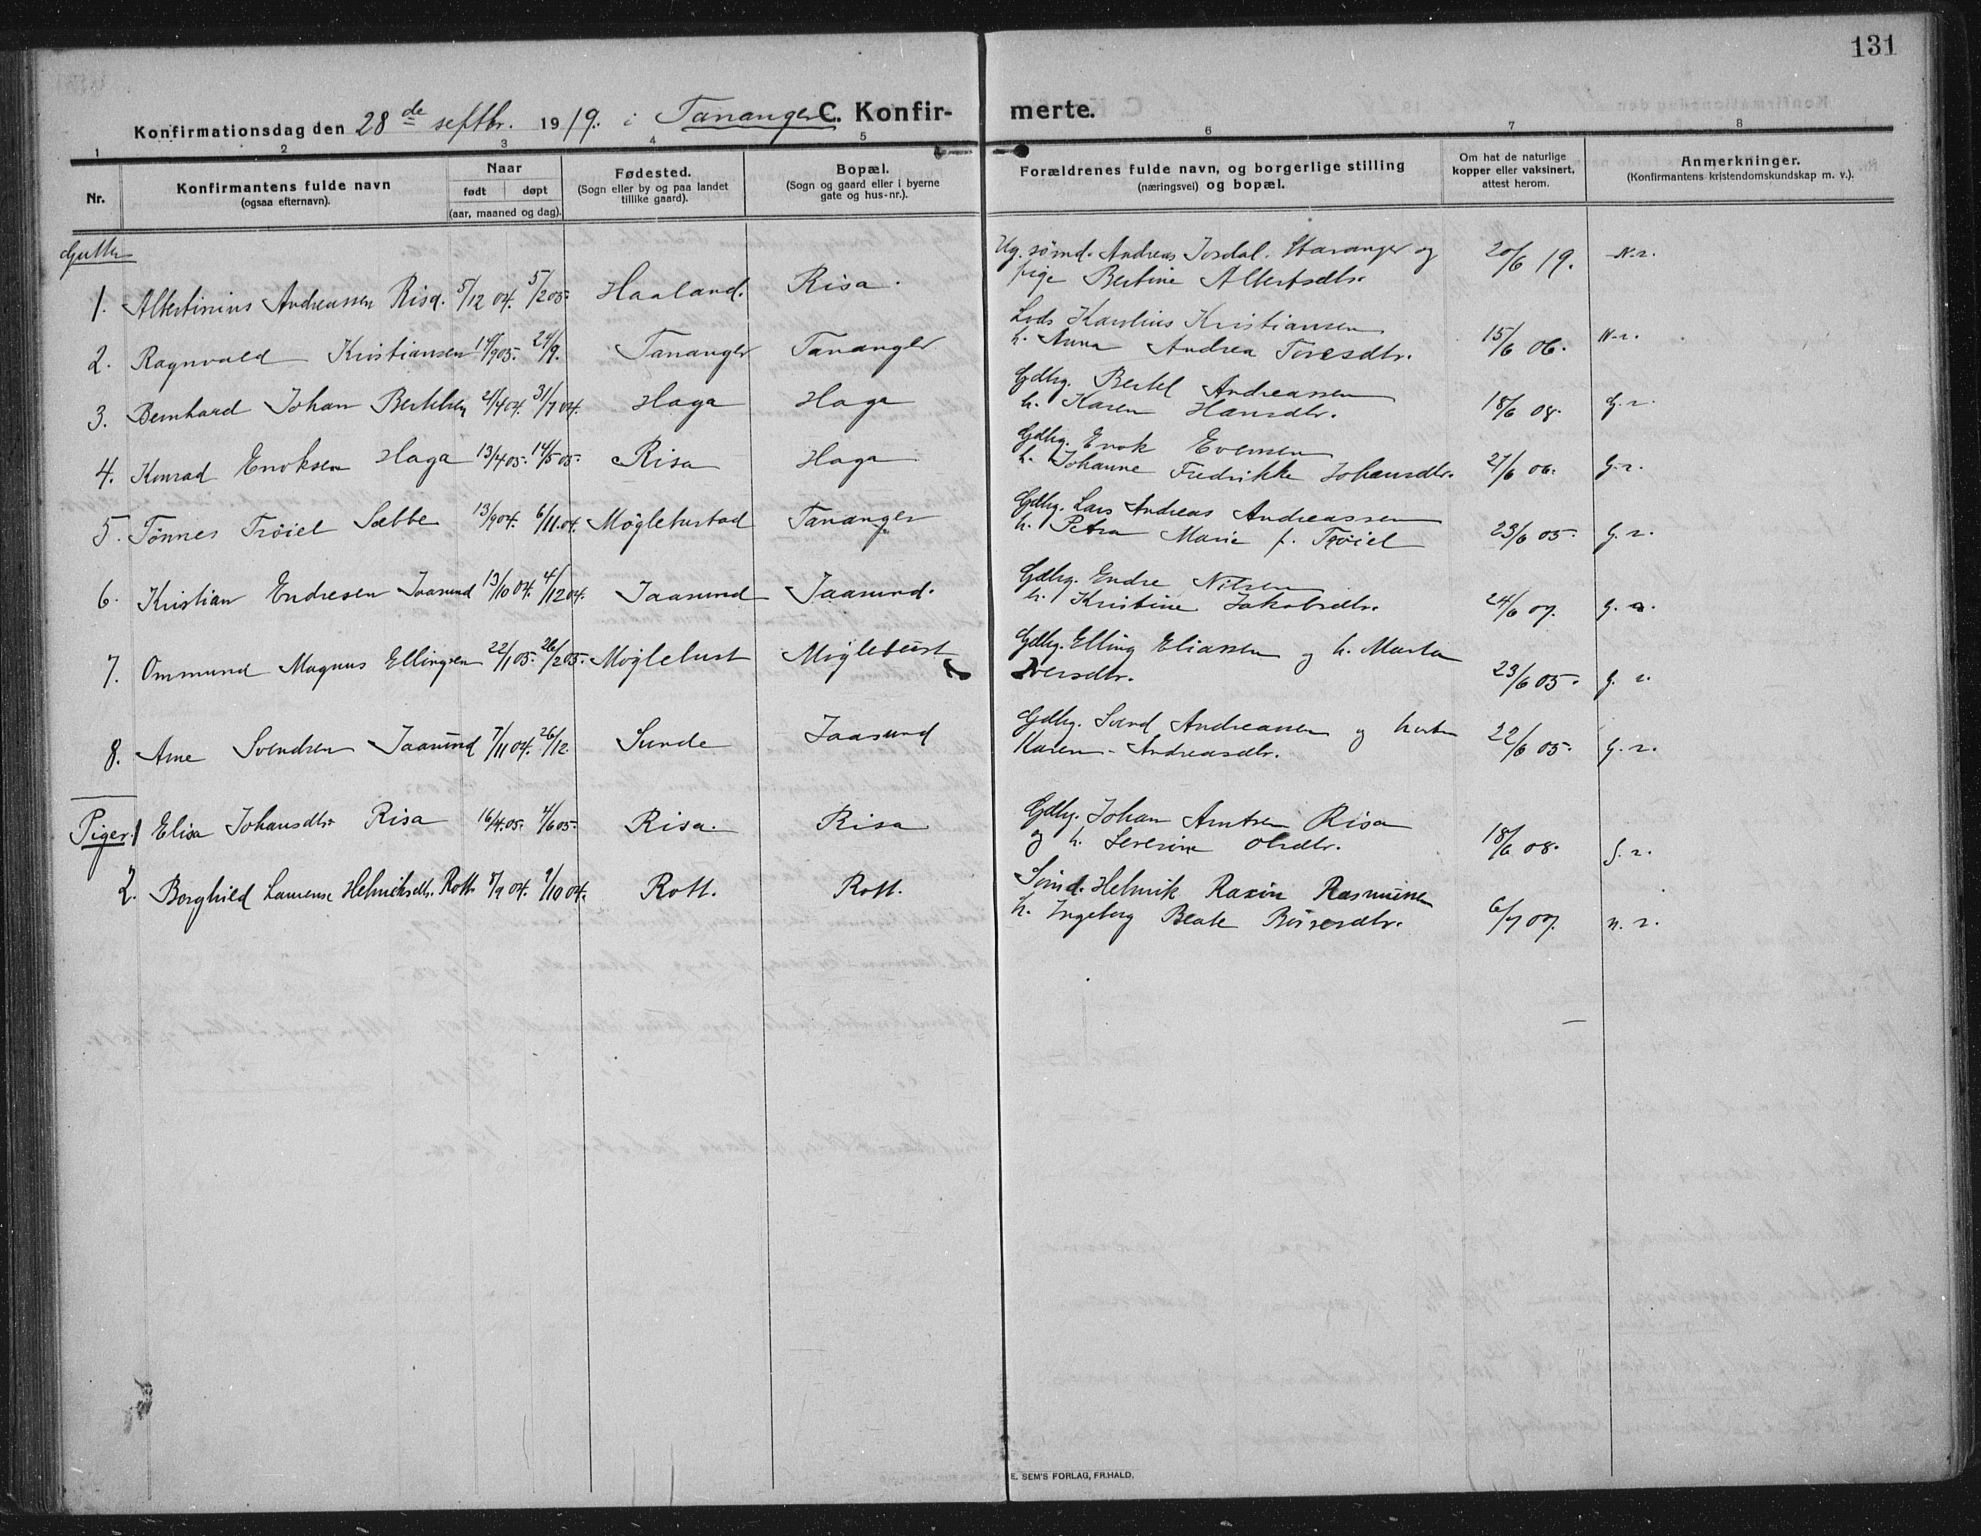 131
Konfirmationsdag den 28de septbr. 1919. i Tananger C. Konfirmerte.
1 2 3 4 5 6 7 8
Nr. Konfirmantens fulde navn (ogsaa efternavn). Naar født døpt (aar, maaned og dag). Fødested. (Sogn eller by og paa landet tillike gaard). Bopæl. (Sogn og gaard eller i byerne gate og hus-nr.). Forældrenes fulde navn, og borgerlige stilling (næringsvei) og bopæl. Om hat de naturlige kopper eller vaksinert, attest herom. Anmerkninger. (Konfirmantens kristendomskundskap m. v.).
Gutter
1. Albertinius Andreassen Risa. 5/12 04. 5/2 05. Haaland. Risa. Ug. sømd. Andreas Josdal. Stavanger og pige Bertine Albertsdtr. 20/6 19. N.r.
2. Ragnvald Kristiansen 14/9 05. 24/9. Tananger Tananger Lods Karolius Kristiansen h. Anna Andrea Toresdtr. 15/6 06. N.r.
3. Bernhard Johan Bertelsen 2/4 04. 31/7 04. Haga Haga Gdbg. Bertel Andreassen h. Karen Hansdtr. 18/6 08. G.r.
4. Konrad Enoksen Haga 13/4 05. 14/5 05. Risa Haga Gdbg. Enok Evensen h. Johanne Fredrikke Johansdtr. 27/6 06. G.r.
5. Tønnes Trøiel Sæbbe 13/9 04. 6/11 04. Møglebustad Tananger Gdbg. Lars Andreas Andreassen h. Petra Marie f. Trøiel 23/6 05. G.r.
6. Kristian Endresen Jaasund 13/10 04. 4/12 04. Jaasund Jaasund. Gdbg. Endre Nilsen h. Kristine Jakobsdtr. 24/6 07. G.
7. Ommund Magnus Ellingsen 22/1 05. 26/2 05. Møglebust Møglebust Gdbg. Elling Eliassen og h. Marta Iversdtr. 23/6 05. G. r.
8. Arne Svendsen Jaasund 7/11 04. 26/12. Sunde Jaasund Gdbg. Svend Andreassen og hustru Karen Andreasdtr. 22/6 05. G.r.
Piger. 1 Elisa Johansdtr Risa 16/4 05. 4/6 05. Risa. Risa Gdbg. Johan Arntsen Risa og h. Severine Olsdtr. 18/6 08. G.r.
2. Borghild Laurense Helmiksdtr. Rott. 5/9 04. 9/10 04. Rott. Rott. Sømd. Helmik Raxin Rasmussen h. Ingeborg Beate Børresdtr. 6/7 07. N.r.
E. SEM'S FORLAG, FR.HALD.